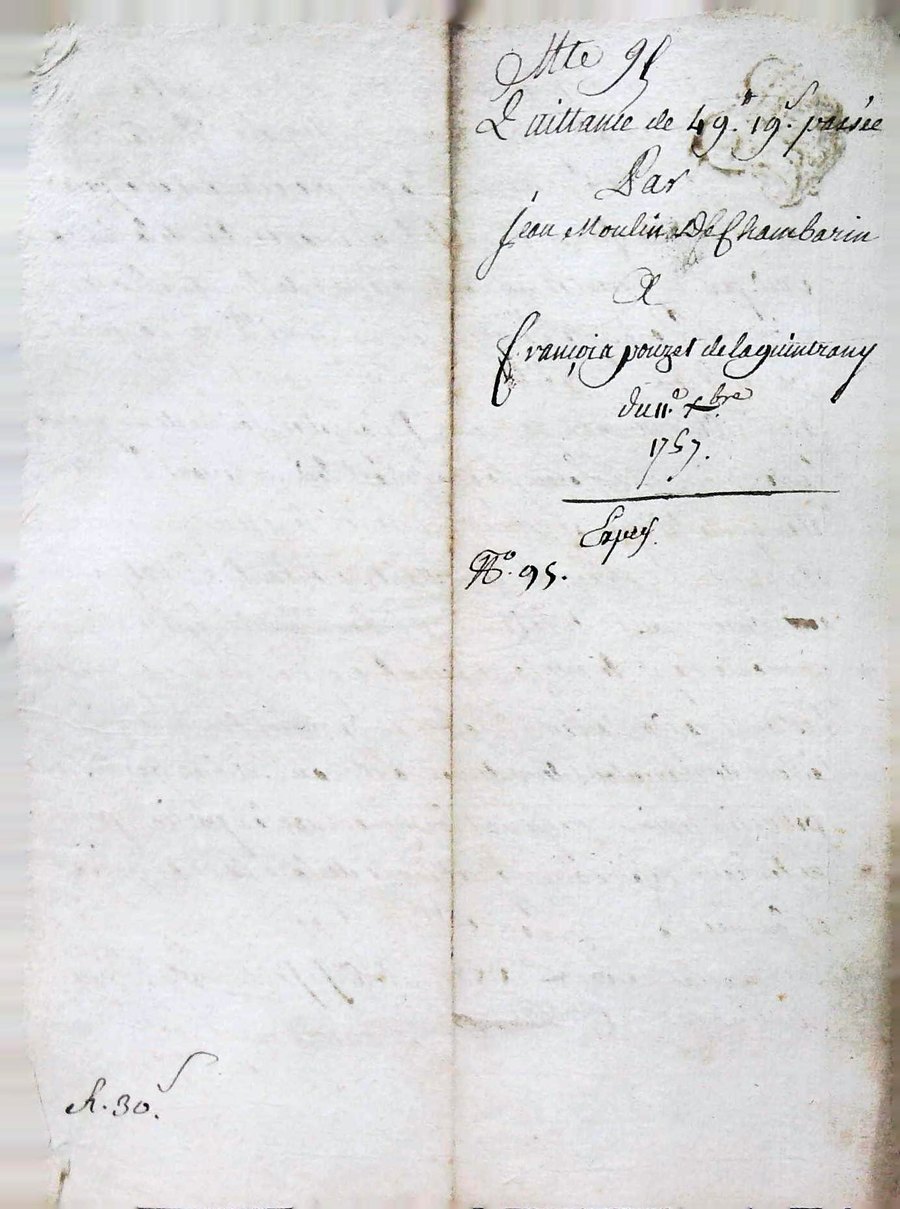 Cotte 95
Quittance de 49.tt 19.s passée
Par
jean Moulin de Chambarin
A
François pouzet de laguintrany
du 11.e xbre
1757.
Expey.
N.o 95.
ch. 30.s